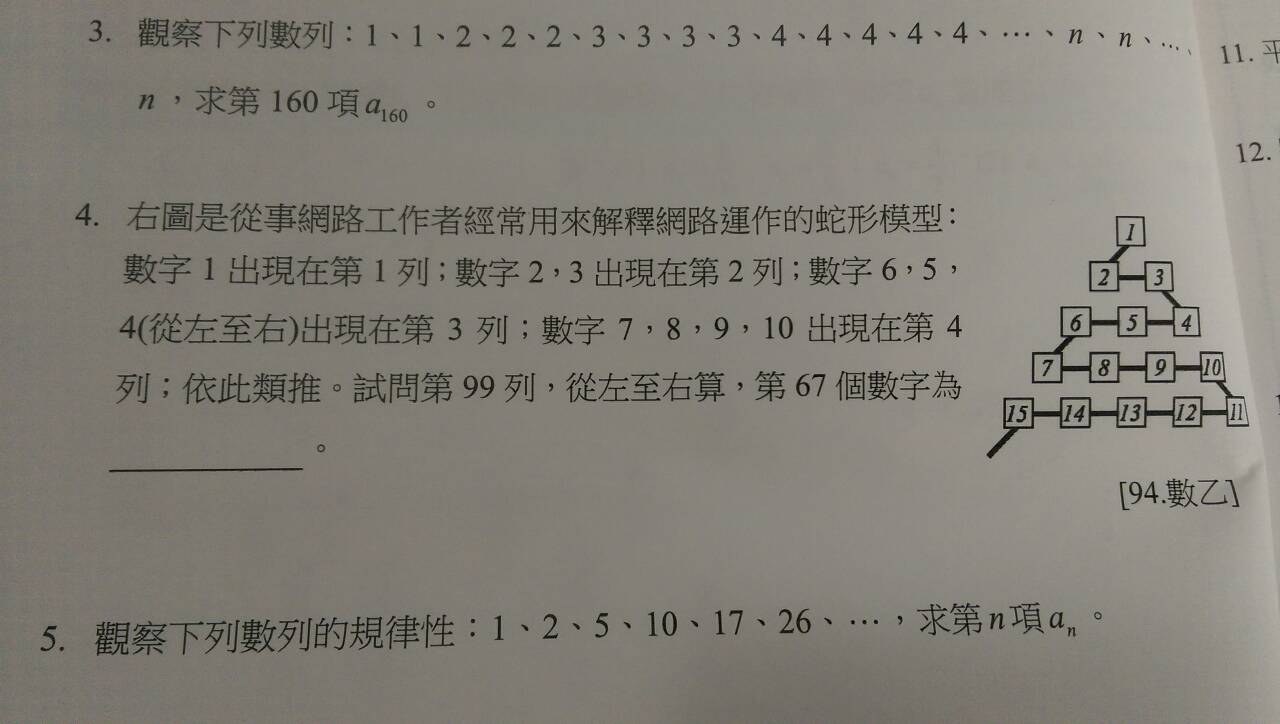 3. 觀察下列數列：1、1、2、2、2、3、3、3、3、4、4、4、4、4、…、n、n、…、
n，求第 160 項 a₁₆₀。
4. 右圖是從事網路工作者經常用來解釋網路運作的蛇形模型：
數字 1 出現在第 1 列；數字 2，3 出現在第 2 列；數字 6，5，
4(從左至右)出現在第 3 列；數字 7，8，9，10 出現在第 4
列；依此類推。試問第 99 列，從左至右算，第 67 個數字為
。
1
2 3
6 5 4
7 8 9 10
15 14 13 12 11
[94.數乙]
5. 觀察下列數列的規律性：1、2、5、10、17、26、…，求第 n 項 aₙ。
11. 平
12.